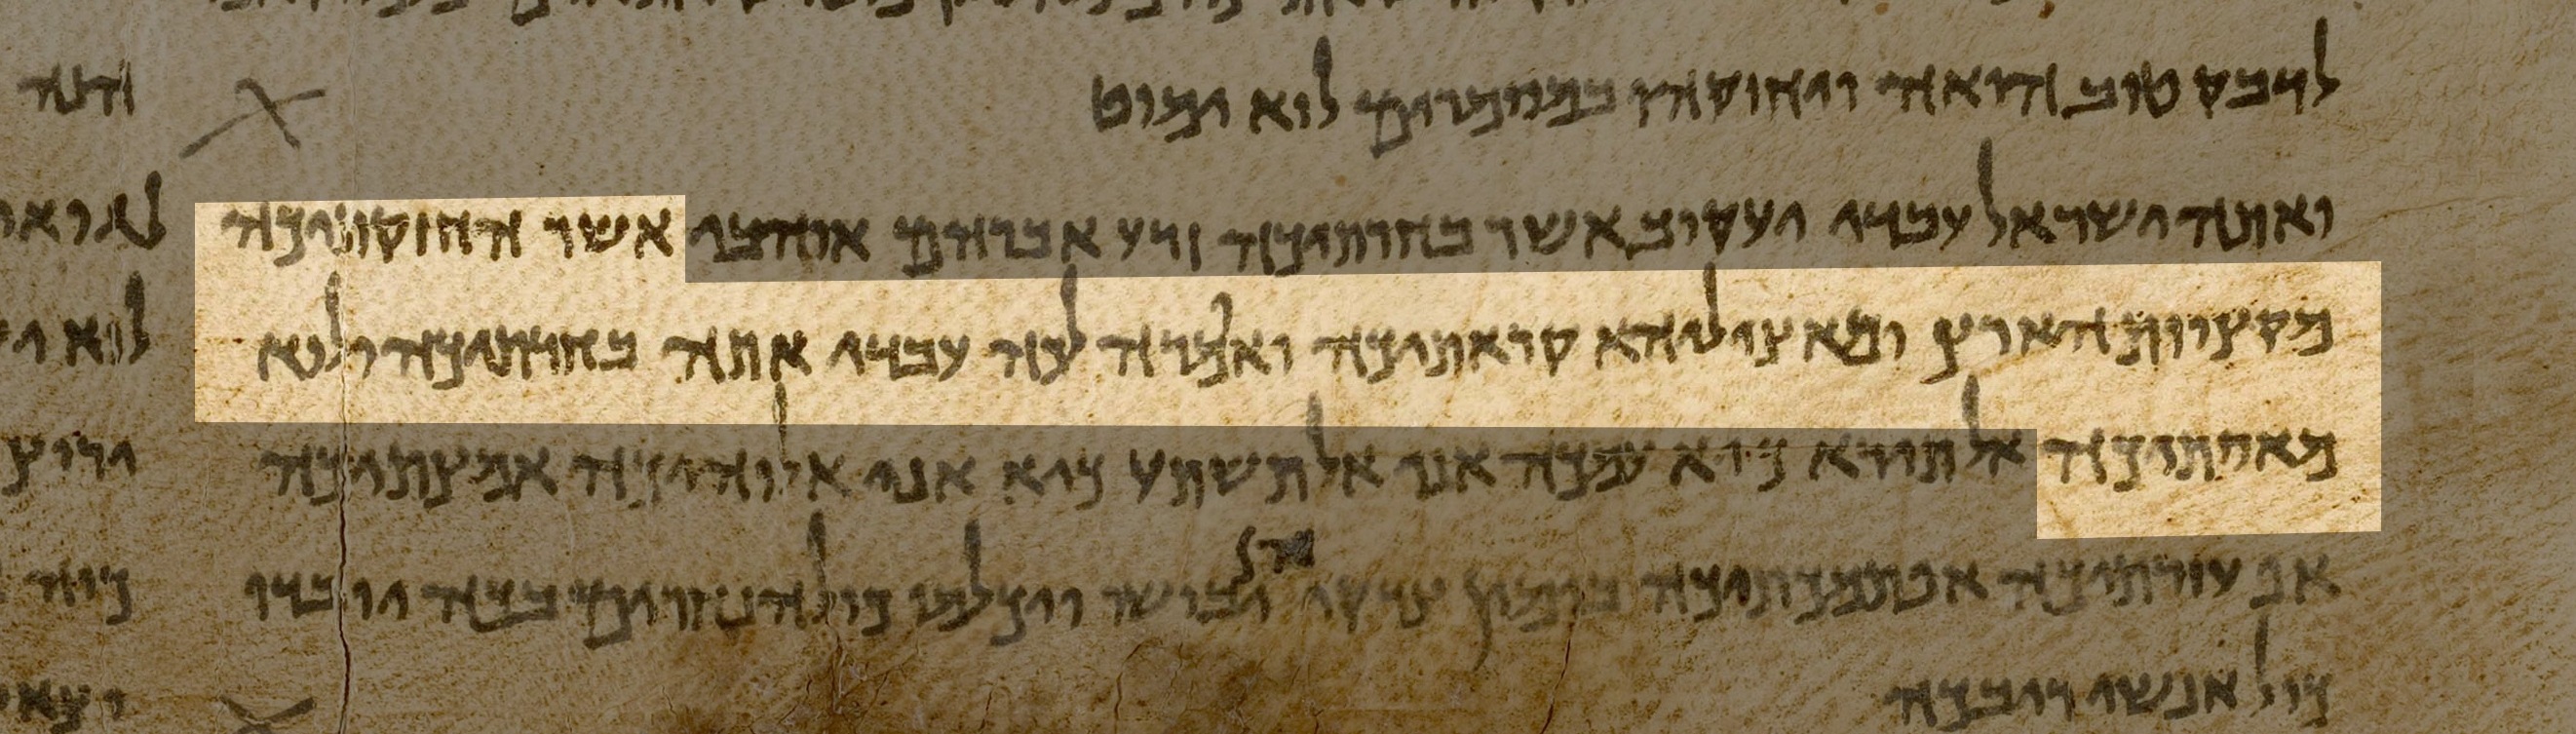 לדבק טוב הואה ויחזקהו במסמרים לוא ימוט
ואתה ישראל עבדי יעקוב אשר בחרתיכה זרע אברהם אוהבי אשר החזקתיכה
מקצוות הארץ ומאציליהא קראתיכה ואמרה לכה עבדי אתה בחרתיכה ולוא
מאסתיכה אל תירא כיא עמכה אני אל תשתע כיא אני אלוהיכה אמצתיכה
אף עזרתיכה אף תמכתיכה בימין צדקי יבושו ויכלמו כול הנחרים בכה יובדו
כול אנשי ריבכה